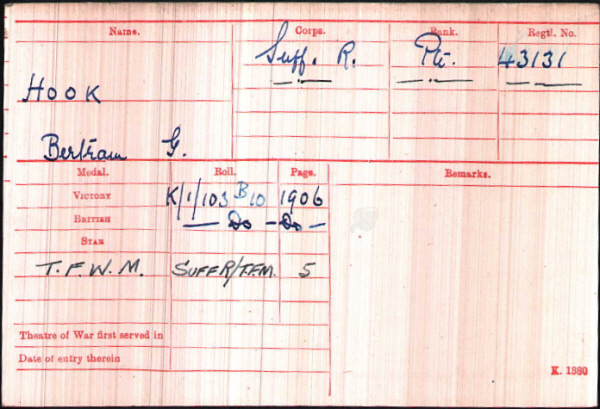 Name. Corps. Rank. Regtl. No.
Suff. R. Pte. 43131
HOOK
Bertram G.
Medal. Roll. Page. Remarks.
VICTORY K/1/103 B10 1906
BRITISH — Do — Do —
STAR
T.F.W.M. SUFF R/TFM. 5
Theatre of War first served in
Date of entry therein
K. 1380